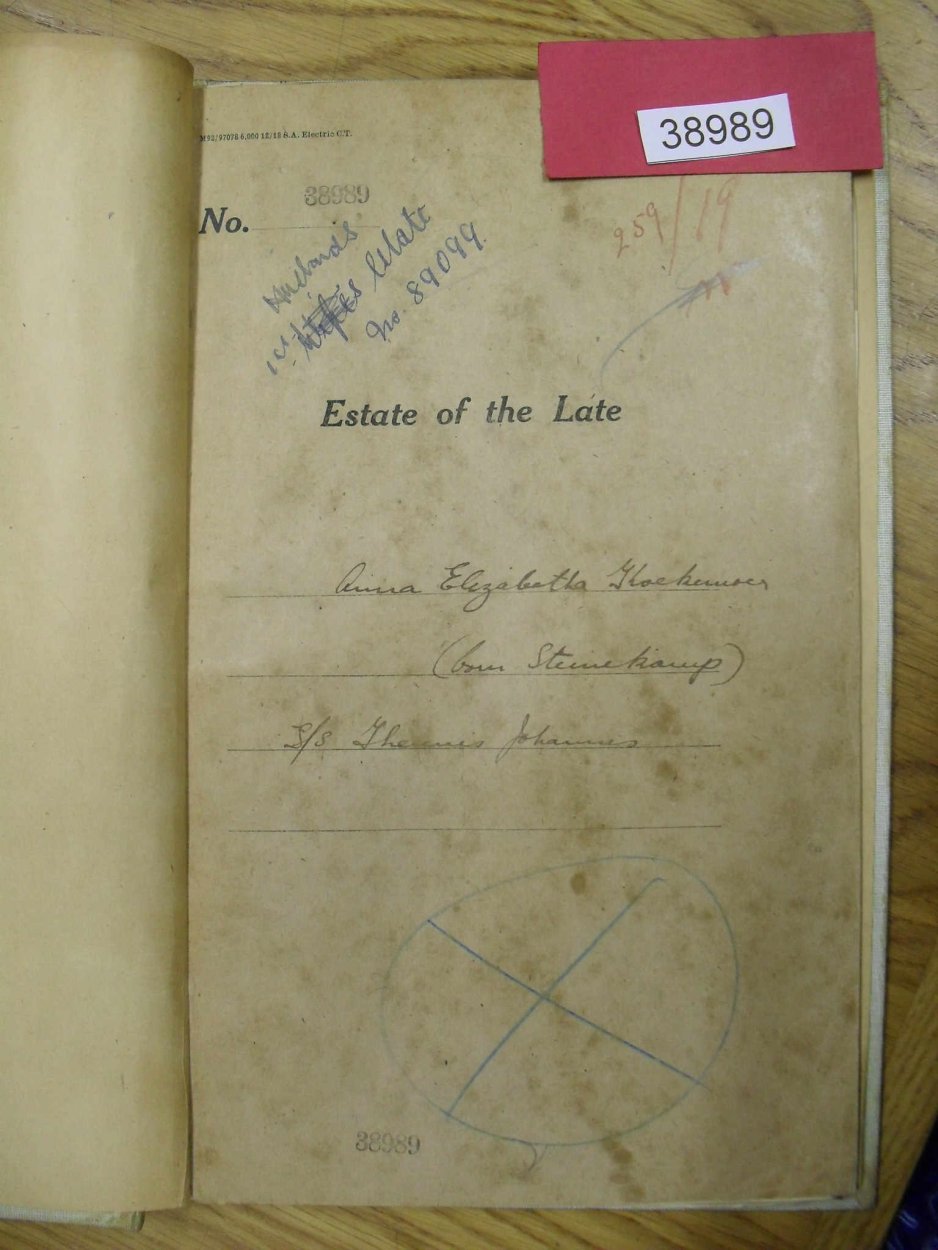 38989
M92/97078 6,000 12/18 S.A. Electric C.T.
38989
No.
259/19
Husband's
Estate
No. 89099.
Estate of the Late
Anna Elizabetha Kloekemoer
(born Steinekamp)
S/S Theunis Johannes
38989